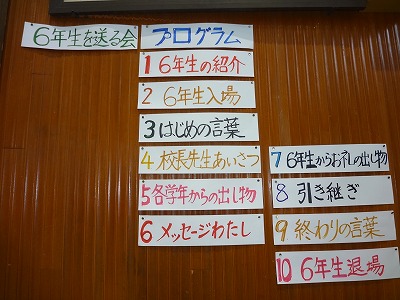 6年生を送る会
プログラム
1 6年生の紹介
2 6年生入場
3 はじめの言葉
4 校長先生あいさつ
5 各学年からの出し物
6 メッセージわたし
7 6年生からお礼の出し物
8 引き継ぎ
9 終わりの言葉
10 6年生退場